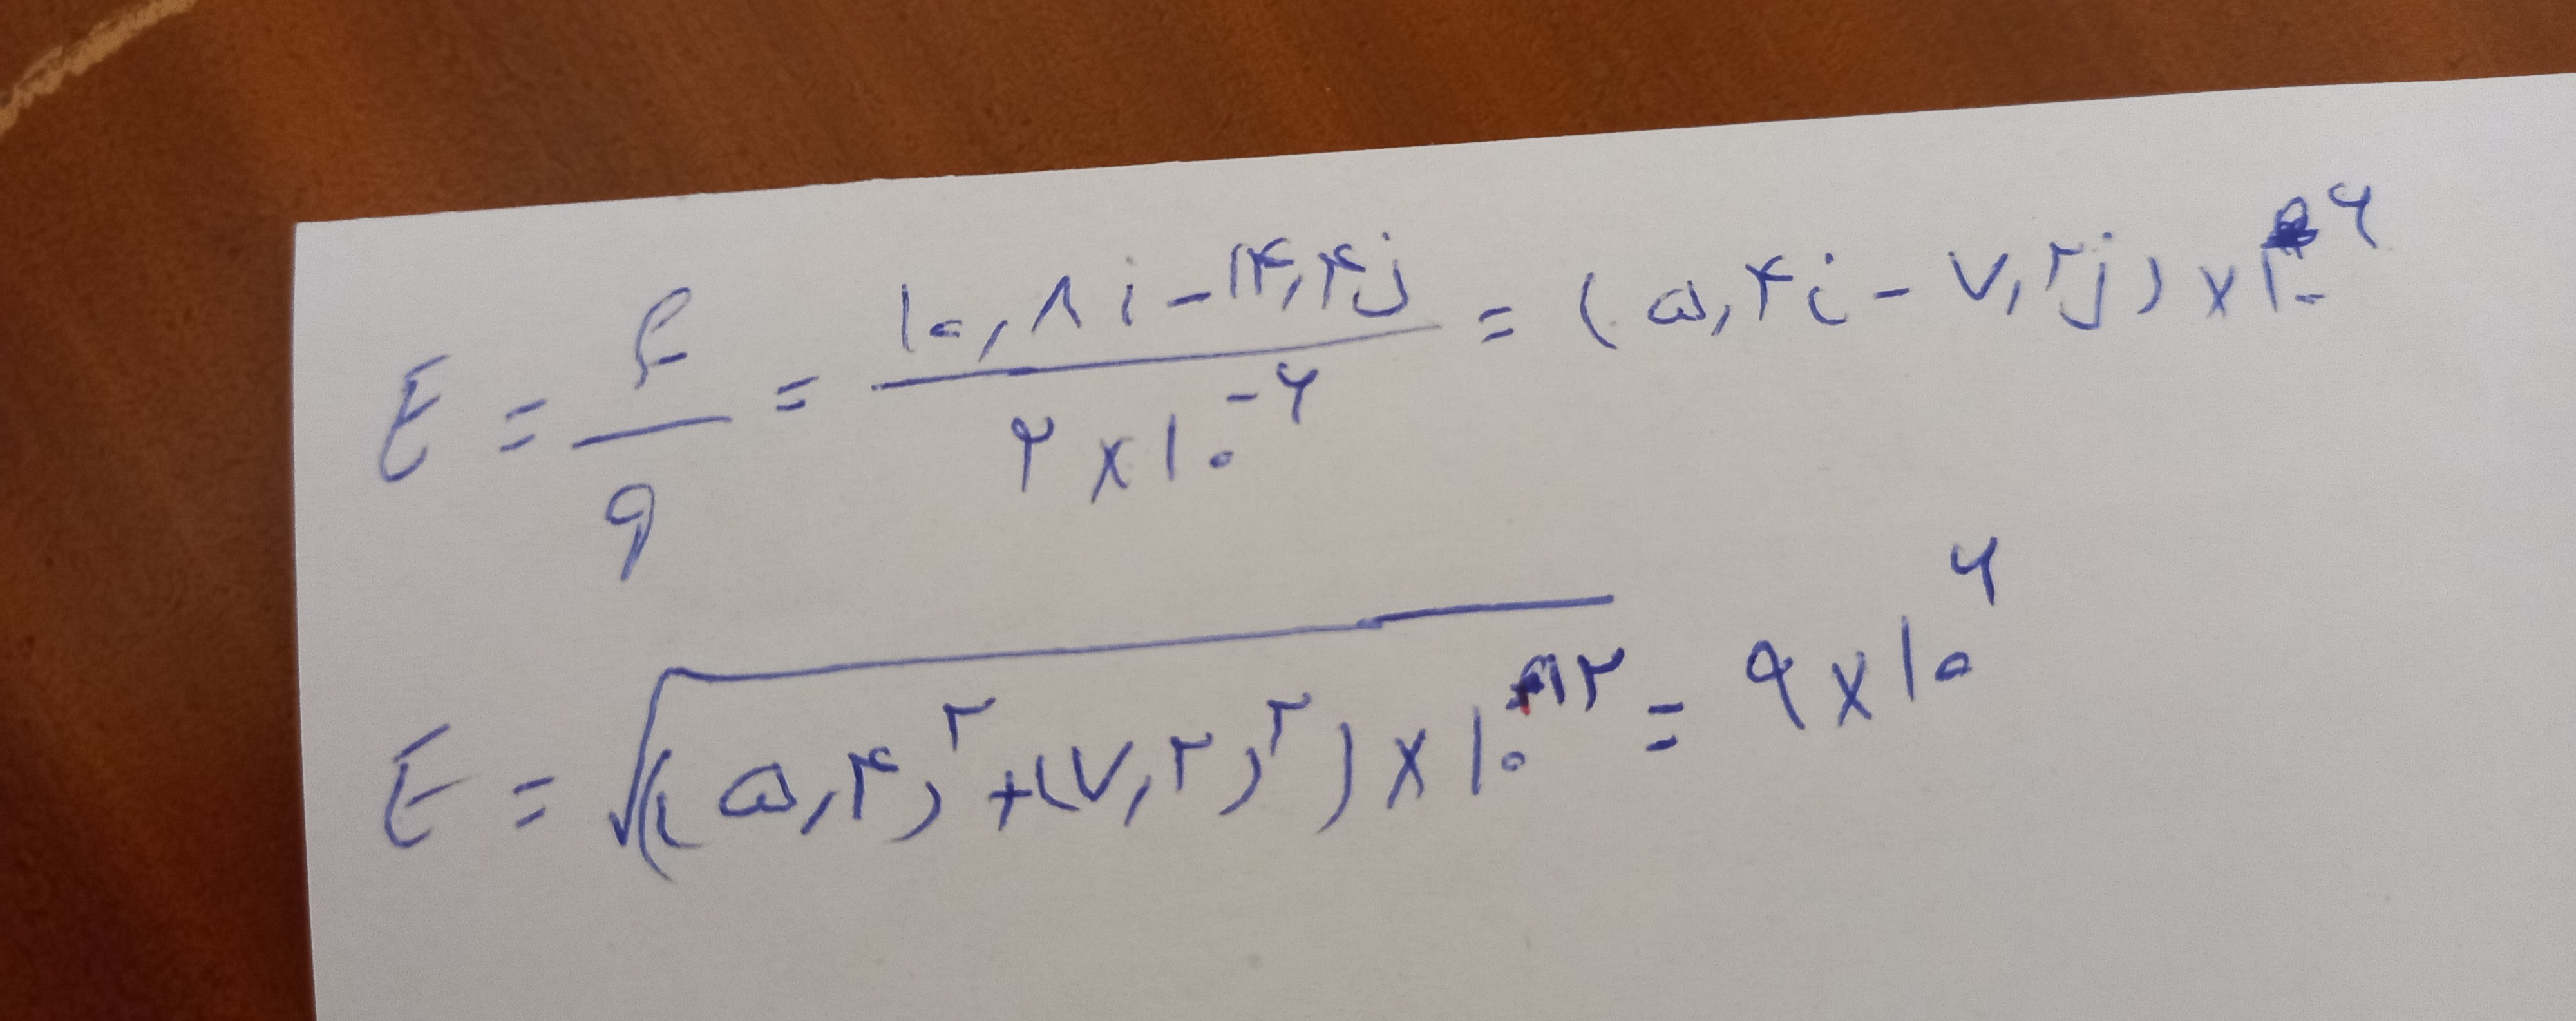 E = F/q = (۱۰,۸i - ۱۴,۴j)/(۲×۱۰^-۶) = (۵,۴i - ۷,۲j) × ۱۰^۶
E = √((۵,۴)^۲ + (۷,۲)^۲) × ۱۰^۱۲ = ۹ × ۱۰^۶